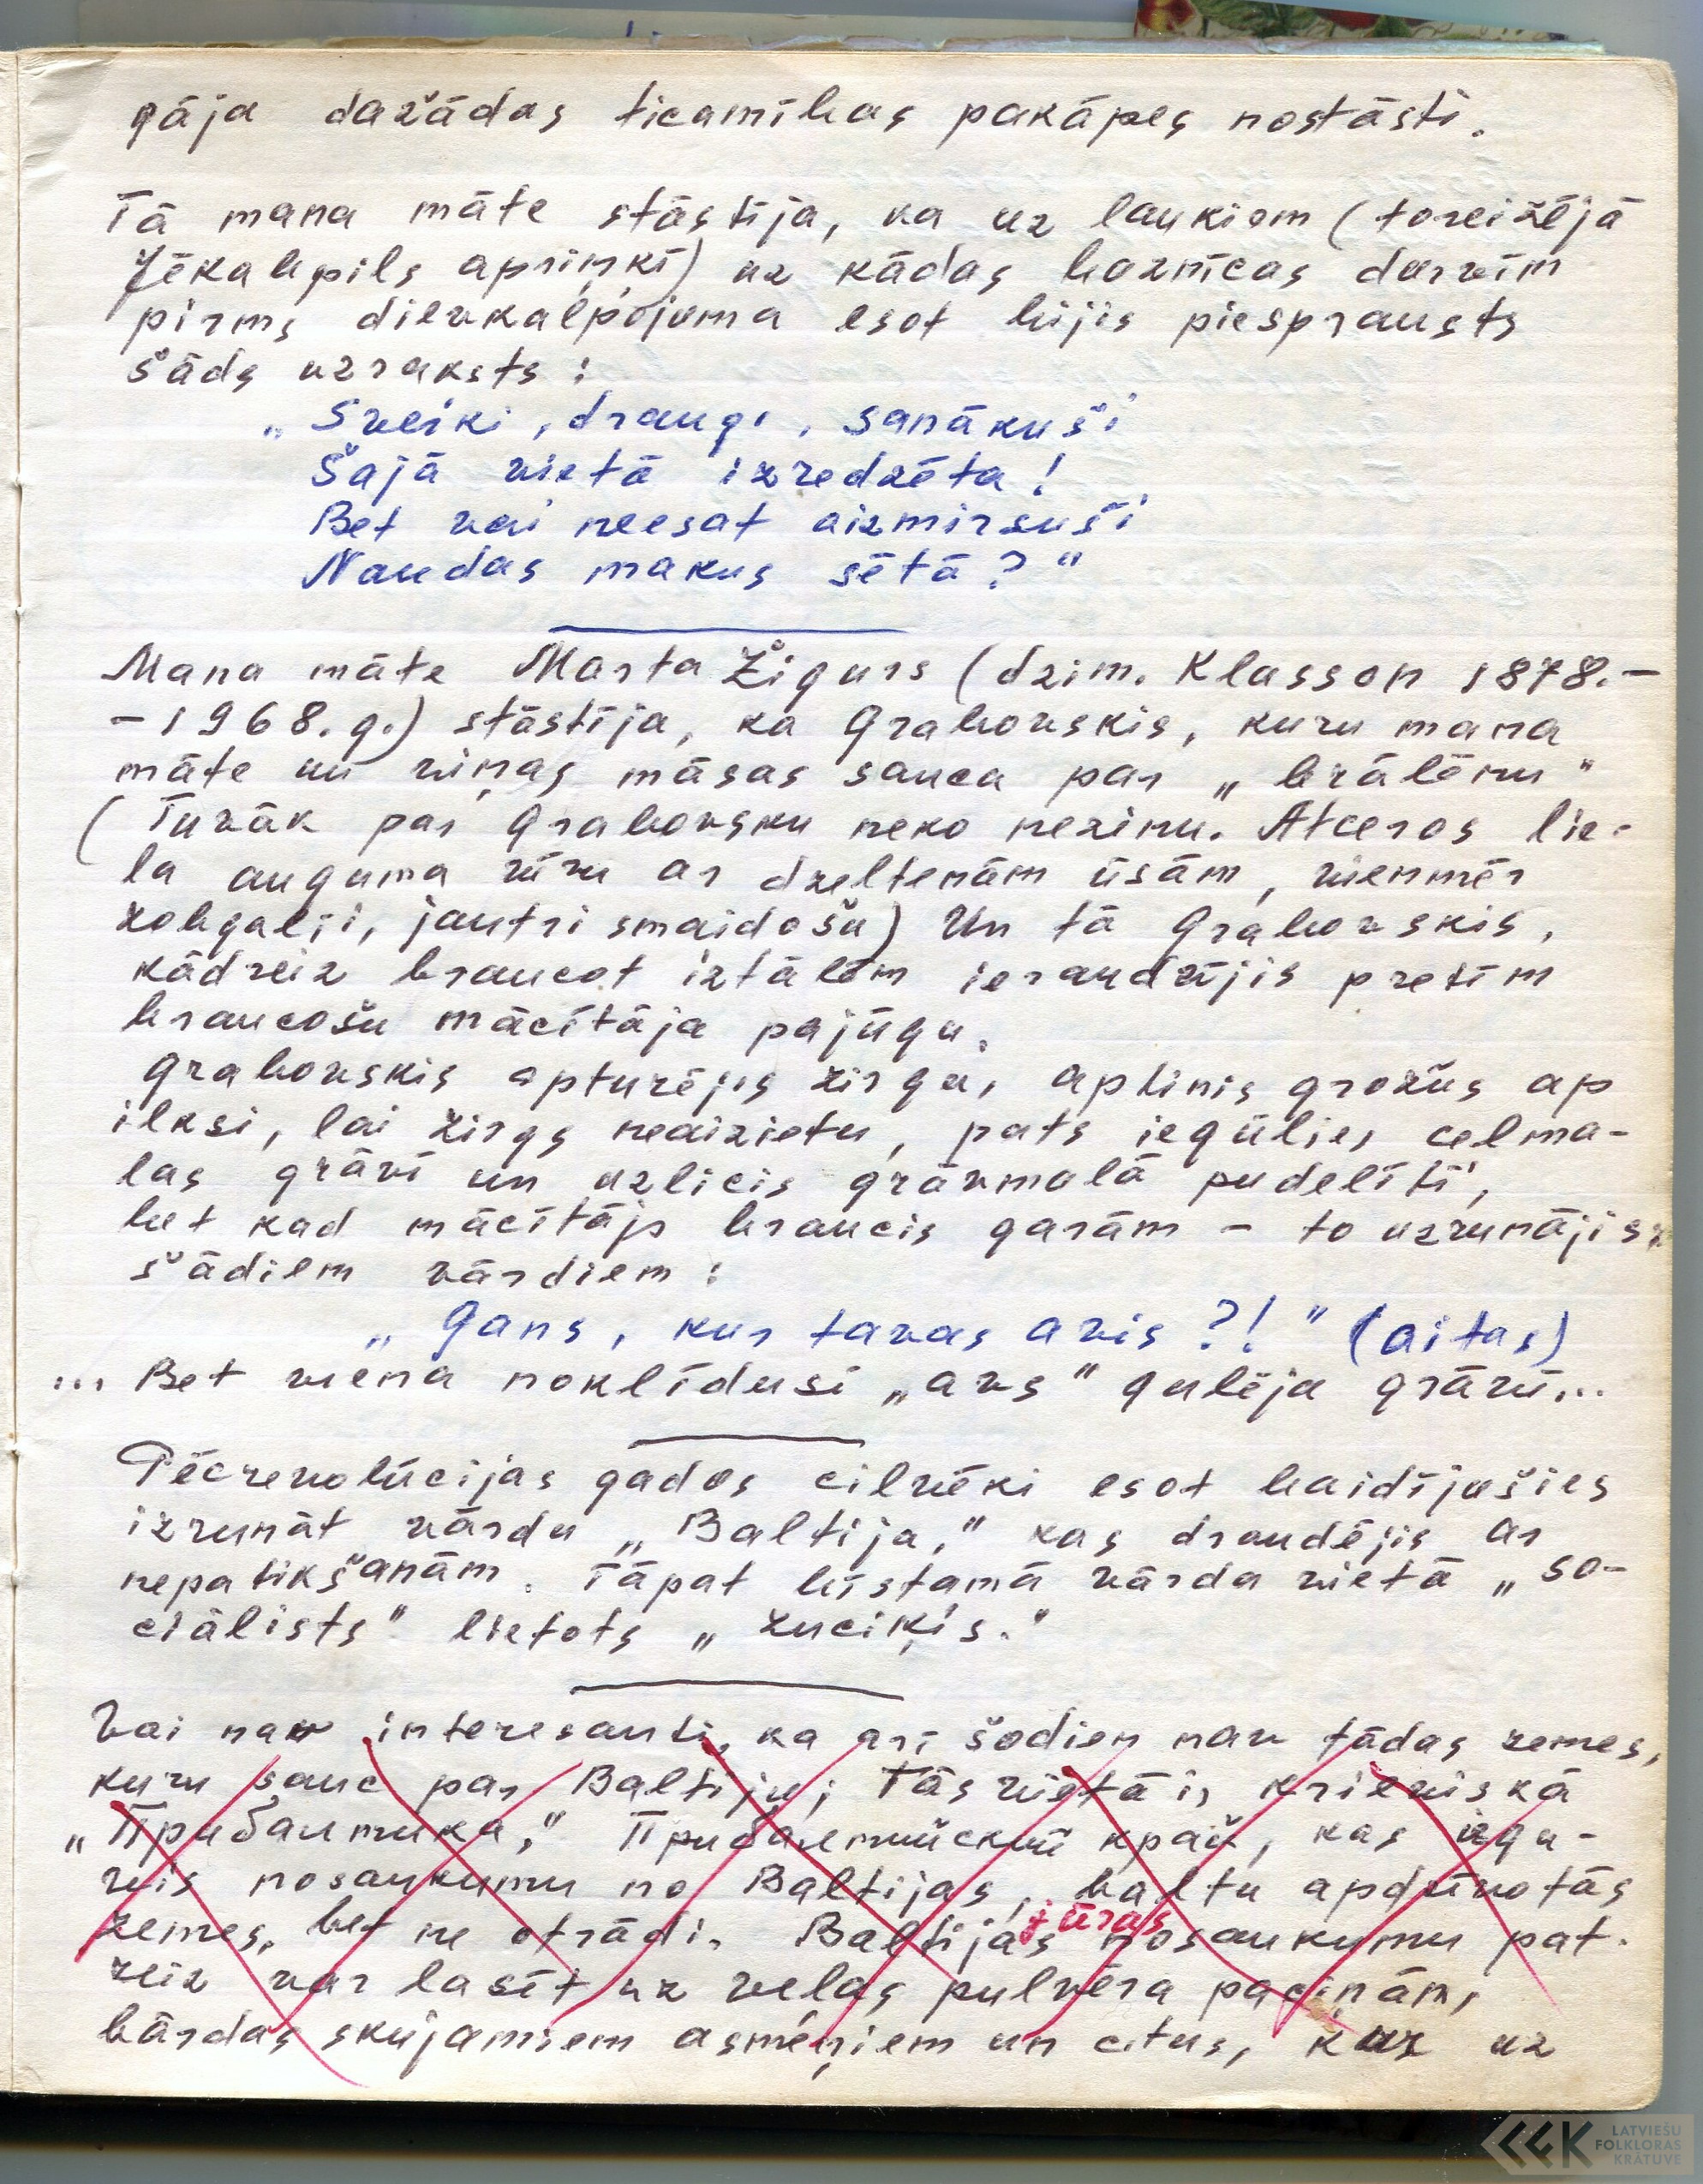 gāja dažādas ticamības pakāpes nostāsti.
Tā mana māte stāstīja, ka uz laukiem (toreizējā
Jēkabpils apriņķī) uz kādas baznīcas durvīm
pirms dievkalpojuma esot bijis piesprausts
šāds uzraksts:
„Sveiki, draugi, sanākuši
Šajā vietā izredzēta!
Bet vai neesat aizmirsuši
Naudas makus sētā?"
Mana māte Marta Žigurs (dzim. Klasson 1878.–
–1968.g.) stāstīja, ka Grabovskis, kuru mana
māte un viņas māsas sauca par „brālēnu"
(Tuvāk par Grabovsku neko nezinu. Atceros lie-
la auguma vīru ar dzeltenām ūsām, vienmēr
zobgalīgi, jautri smaidošu) Un tā Grabovskis,
kādreiz braucot iztālēm ieraudzījis pretīm
braucošu mācītāja pajūgu.
Grabovskis apturējis zirgu, aptinis grožus ap
ilksi, lai zirgs neaizietu, pats iegūlies celma-
las grāvī un uzlicis grāvmalā pudelīti,
bet kad mācītājs braucis garām – to uzrunājis
šādiem vārdiem:
„Gans, kur tavas avis?!" (aitas)
... Bet viena noklīdusi „avs" gulēja grāvī...
Pēcrevolūcijas gados cilvēki esot baidījušies
izrunāt vārdu „Baltija," kas draudējis ar
nepatikšanām. Tāpat bīstamā vārda vietā „so-
ciālists" lietots „zuciķis."
Vai nav interesanti, ka arī šodien nav tādas zemes,
kuru sauc par Baltiju; Tās vietā ir krieviskā
„Прибалтика," Прибалтийский край, kas iegu-
vis nosaukumu no Baltijas, baltu apdzīvotās
zemes, bet ne otrādi. Baltijas nosaukumu pat-
jūras
reiz var lasīt uz veļas pulvera paciņām,
bārdas skujamiem asmeņiem un citus, kur uz
LATVIEŠU
FOLKLORAS
KRĀTUVE